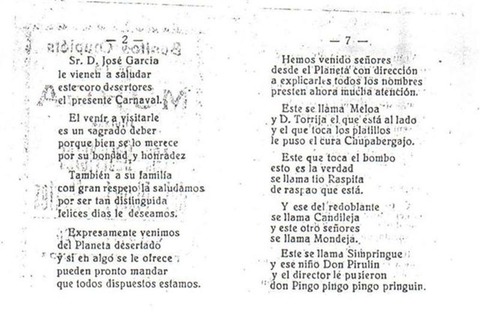 — 2 —
Sr. D. José Garcia
le vienen a saludar
este coro desertores
el presente Carnaval.
El venir a visitarle
es un sagrado deber
porque bien se lo merece
por su bondad y honradez
También a su familia
con gran respeto la saludamos
por ser tan distinguida
felices dias le deseamos.
Expresamente venimos
del Planeta desertado
y si en algo se le ofrece
pueden pronto mandar
que todos dispuestos estamos.
— 7 —
Hemos venido señores
desde el Planeta con dirección
a explicarles todos los nombres
presten ahora mucha atención.
Este se llama Meloa
y D. Torrija el que está al lado
y el que toca los platillos
le puso el cura Chupabergajo.
Este que toca el bombo
esto es la verdad
se llama tio Raspita
de raspao que está.
Y ese del redoblante
se llama Candileja
y este otro señores
se llama Mondeja.
Este se llama Simpringue
y ese niño Don Pirulin
y el director le pusieron
don Pingo pingo pingo pringuin.